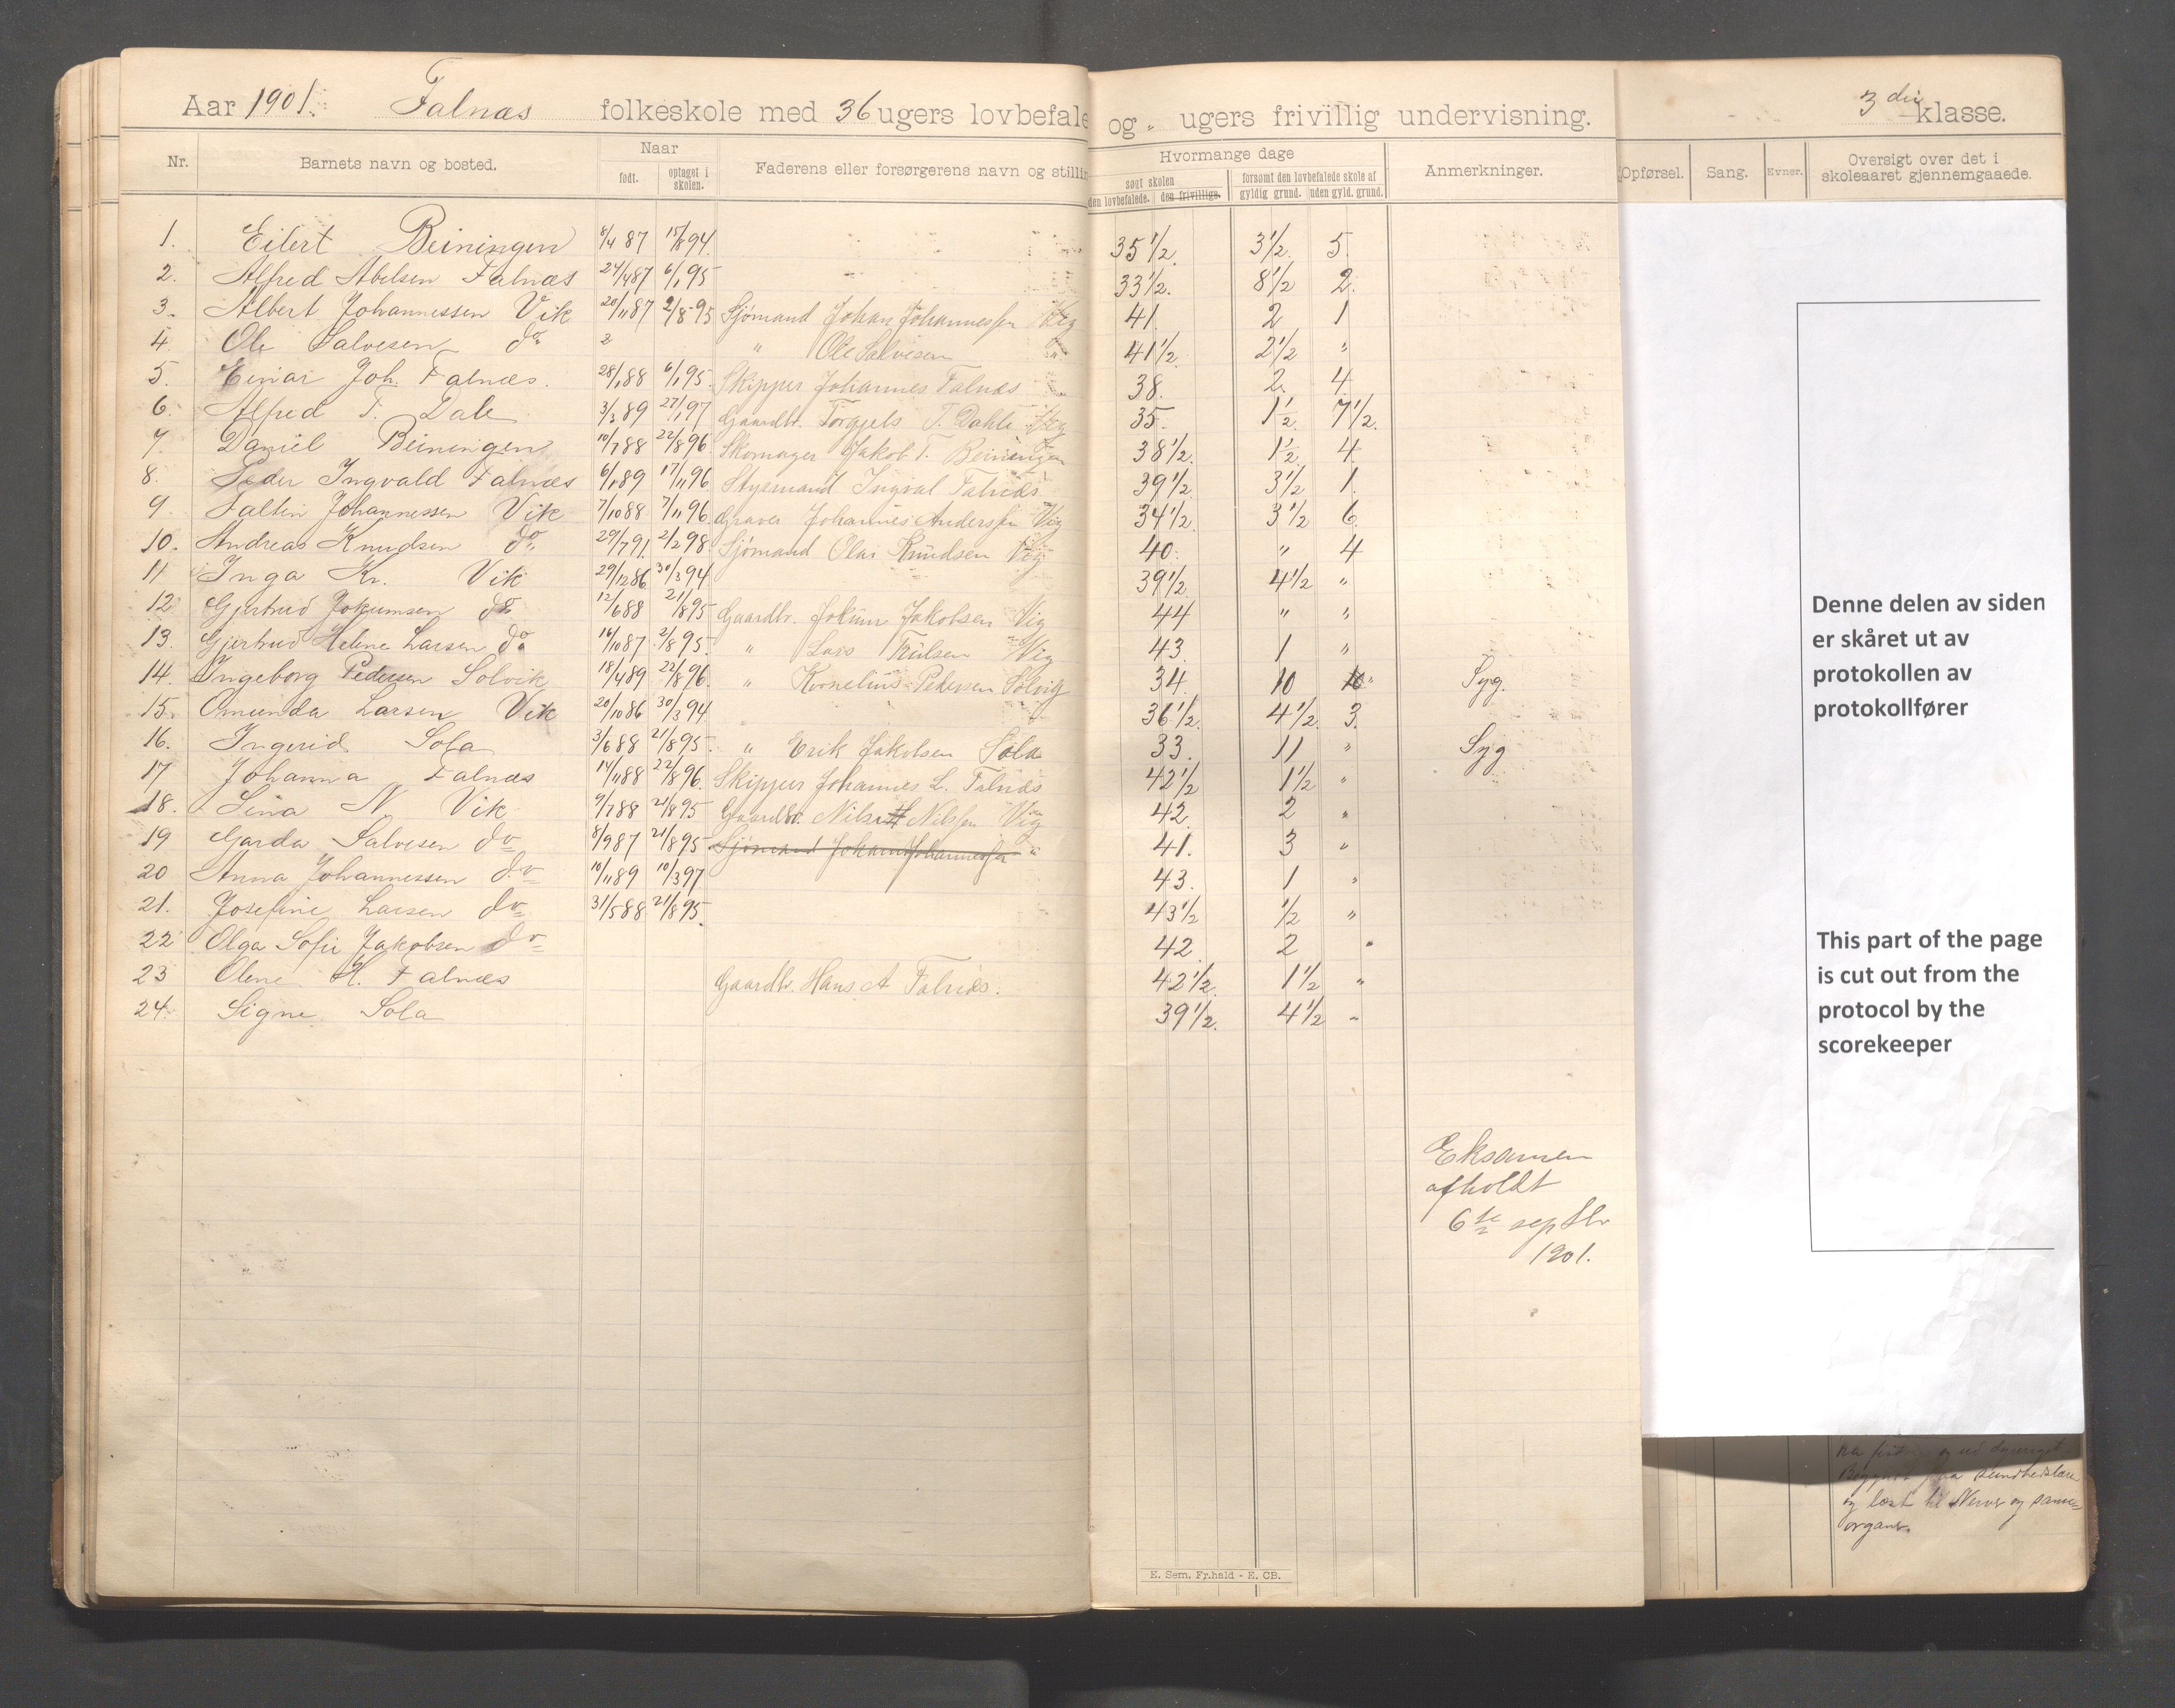 Aar 1901. Falnæs folkeskole med 36 ugers lovbefale og " ugers frivillig undervisning. 3die klasse.
Nr. Barnets navn og bosted. Naar født. optaget i skolen. Faderens eller forsørgerens navn og stillin Hvormange dage søgt skolen den lovbefalede. den frivillige. forsømt den lovbefalede skole af gyldig grund. uden gyld. grund. Anmerkninger. Opførsel. Sang. Evner. Oversigt over det i skoleaaret gjennemgaaede.
1. Eilert Beiningen 8/4 87 15/8 94. 35 1/2. 3 1/2. 5.
2. Alfred Abelsen Falnæs 24/4 87 6/1 95 33 1/2. 8 1/2 2.
3. Albert Johannessen Vik 20/11 87 2/8-95 Sjømand Johan Johannessen Vig 41. 2 1
4. Ole Salvesen do " Ole Salvesen " 41 1/2 2 1/2 "
5. Einar Joh. Falnæs. 28/1 88 6/1 95. Skipper Johannes Falnæs 38. 2. 4
6. Alfred T. Dale 3/3 89 27/1 97 Gaardbr. Torgjels T. Dahle Vig 35. 1 1/2 7 1/2.
7. Daniel Beiningen 10/7 88 22/8 96 Skomager Jakob T. Beiningen 38 1/2. 1 1/2. 4.
8. Peder Ingvald Falnæs 6/1 89 17/11 96 Styrmand Ingval Falnæs 39 1/2 3 1/2 1.
9. Saltin Johannessen Vik 7/10 88 7/11 96. Graver Johannes Anderssen Vig 34 1/2. 3 1/2 6.
10. Andreas Knudsen do 29/7 91. 2/2 98. Sjømand Olai Knudsen Vig 40. " 4
11 Inga Kr. Vik 29/12 86 30/3 94 39 1/2. 4 1/2 "
12 Gjertrud Jokumsen do 12/6 88 21/8 95 Gaardbr. Jokum Jakobsen Vig 44 " "
13. Gjertrud Helene Larsen do 16/10 87. 2/8 95. " Lars Trulsen Vig 43. 1 "
14. Ingeborg Pedersen Solvik 18/4 89 22/8 96. " Kornelius Pedersen Solvig 34. 10 " Syg.
15. Omunda Larsen Vik 20/10 86 30/3 94 36 1/2. 4 1/2. 3.
16. Ingerid Sola 3/6 88 21/8 95. " Erik Jakobsen Sola 33. 11 " Syg
17 Johanna Falnæs 14/11 88 22/8 96. Skipper Johannes L. Falnæs 42 1/2 1 1/2 "
18. Sina N. Vik 9/7 88 21/8 95 Gaardbr. Nils Nilssen Vig 42. 2 "
19 Garda Salvesen do 8/9 87 21/8 95 Sjømand Johan Johannessen " 41. 3 "
20 Anna Johannessen do 10/11 89 10/3 97 43. 1 "
21. Josefine Larsen do 31/5 88 21/8 95. 43 1/2 1/2 "
22 Olga Sofie Jakobsen do 42. 2 "
23 Olene H. Falnæs Gaardbr. Hans A Falnæs. 42 1/2. 1 1/2 "
24. Signe Sola 39 1/2. 4 1/2 "
Eksamen
afholdt
6te septbr
1901.
E. Sem, Fr.hald - E. CB.
Denne delen av siden
er skåret ut av
protokollen av
protokollfører
This part of the page
is cut out from the
protocol by the
scorekeeper
Sundhedslære
og læst til Nerver og sanse-
organer.